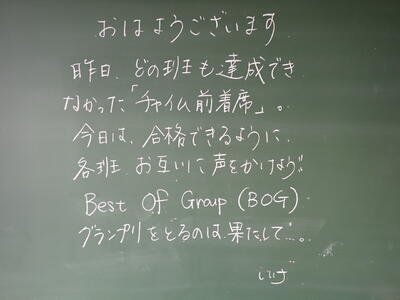 おはようございます
昨日、どの班も達成でき
なかった「チャイム前着席」。
今日は、合格できるように、
各班、お互いに声をかけよう!!
Best Of Group (BOG)
グランプリをとるのは果たして…。